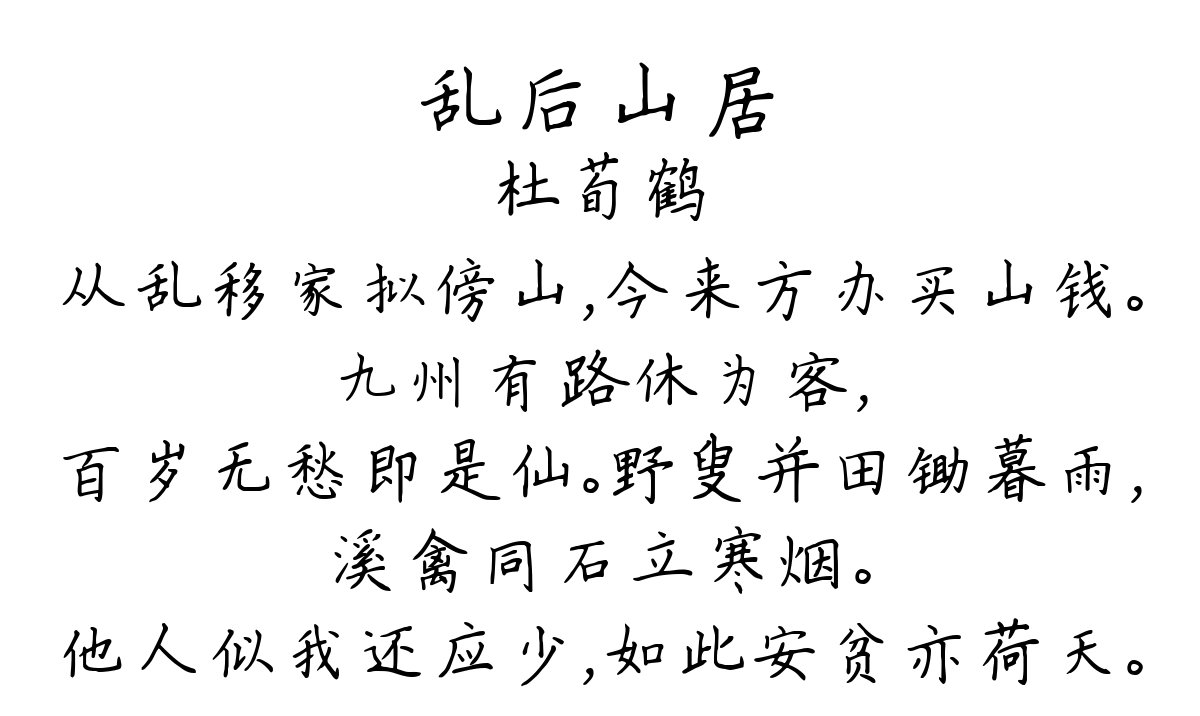 乱后山居
杜荀鹤
从乱移家拟傍山,今来方办买山钱。
九州有路休为客,
百岁无愁即是仙。野叟并田锄暮雨,
溪禽同石立寒烟。
他人似我还应少,如此安贫亦荷天。